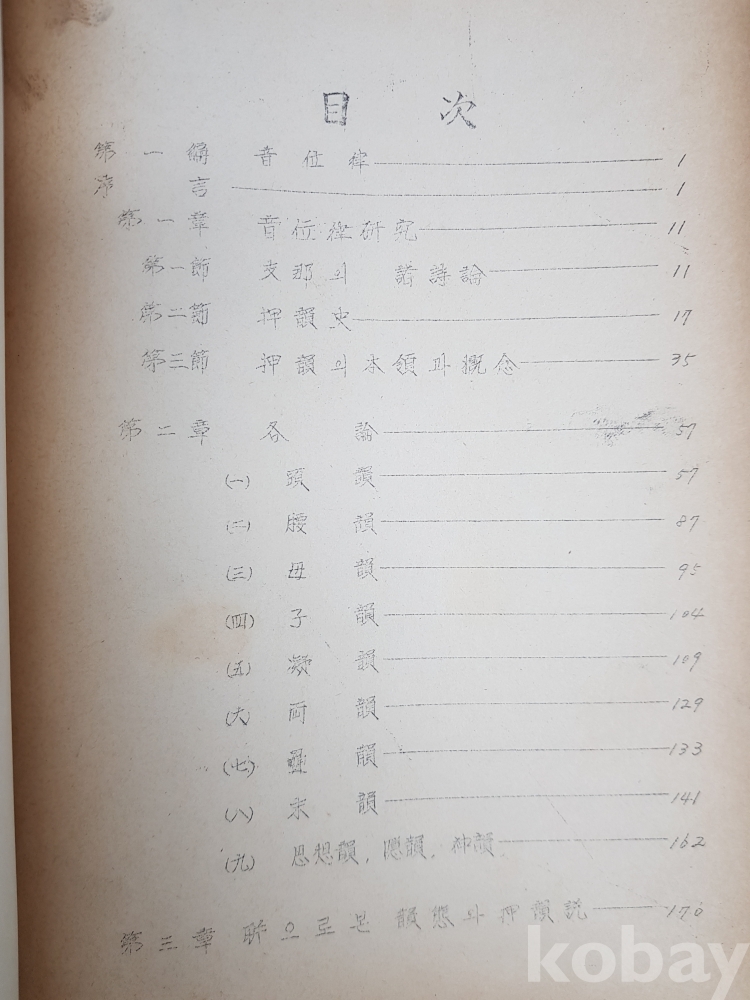 目 次
第一編 音位律 1
序言 1
第一章 音位律研究 11
第一節 支那의 諸詩論 11
第二節 押韻史 17
第三節 押韻의 本領과 概念 35
第二章 各論 57
(一) 頭韻 57
(二) 腰韻 87
(三) 母韻 95
(四) 子韻 104
(五) 擬韻 109
(六) 両韻 129
(七) 疊韻 133
(八) 末韻 141
(九) 思想韻, 隠韻, 韻 162
第三章 聯으로본 韻態와 押韻説 170
kobay